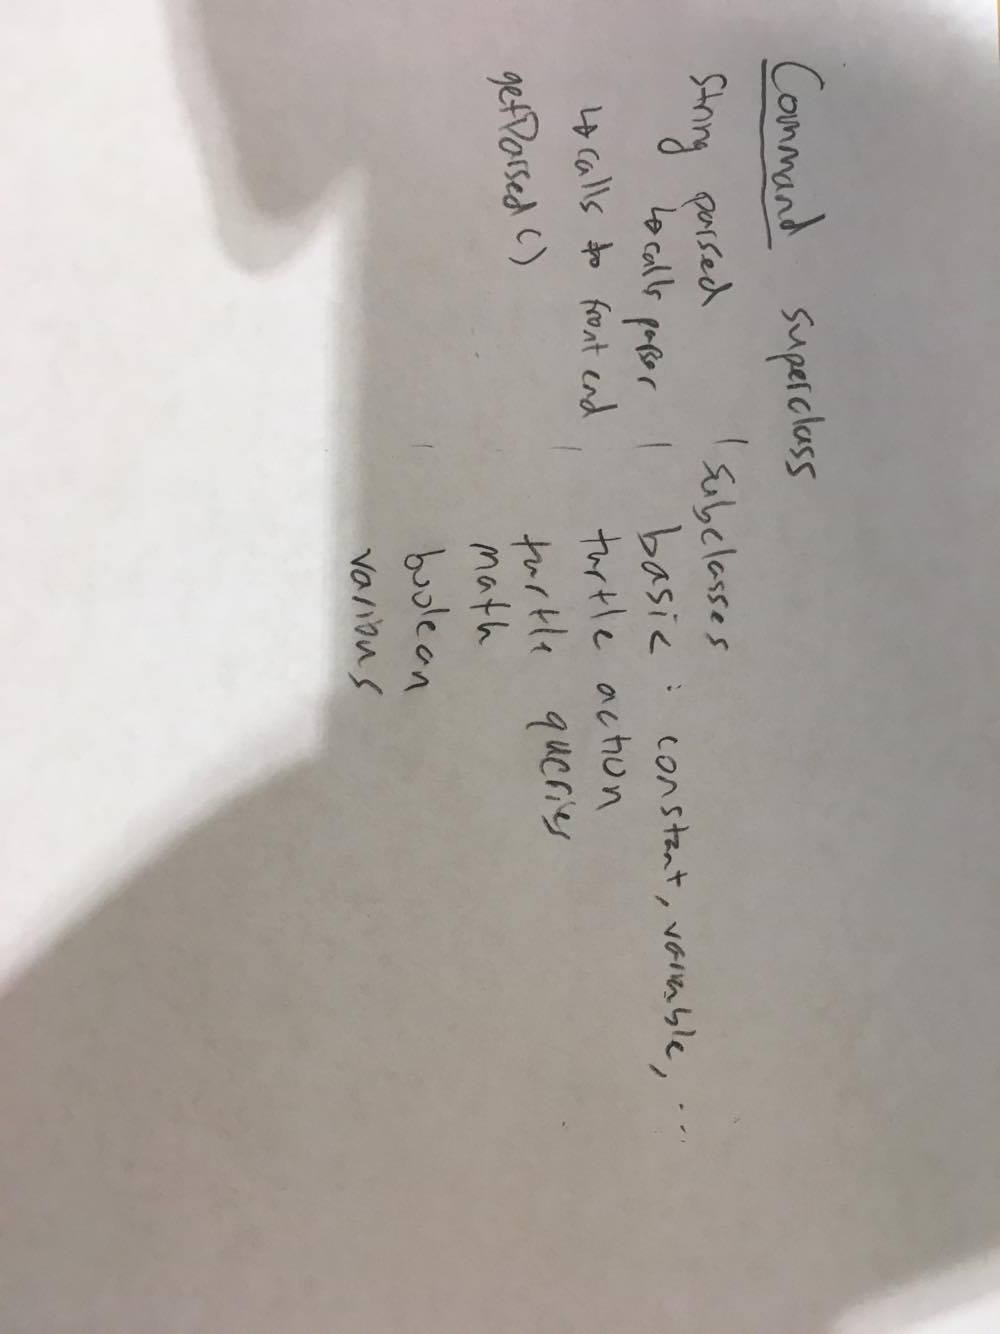 Command superclass
String parsed
↳ calls parser
↳ calls to front end
getParsed()
subclasses
basic : constant, variable, ...
turtle action
turtle queries
math
boolean
various